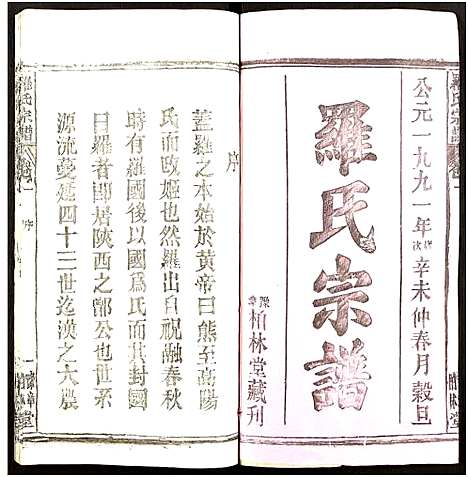 公元一九九一年歲次辛未仲春月穀旦
羅氏宗譜
豫章柏林堂藏刊
羅氏宗譜
序
蓋羅之本始於黃帝曰熊至高陽
氏而歐姬也然羅出自祝融春秋
時有羅國後以國爲氏而其封國
曰羅者卽居陝西之鄮公也世系
源流蔓延四十三世迄漢之大農
羅氏宗譜
卷一
序
一
豫章
柏林堂